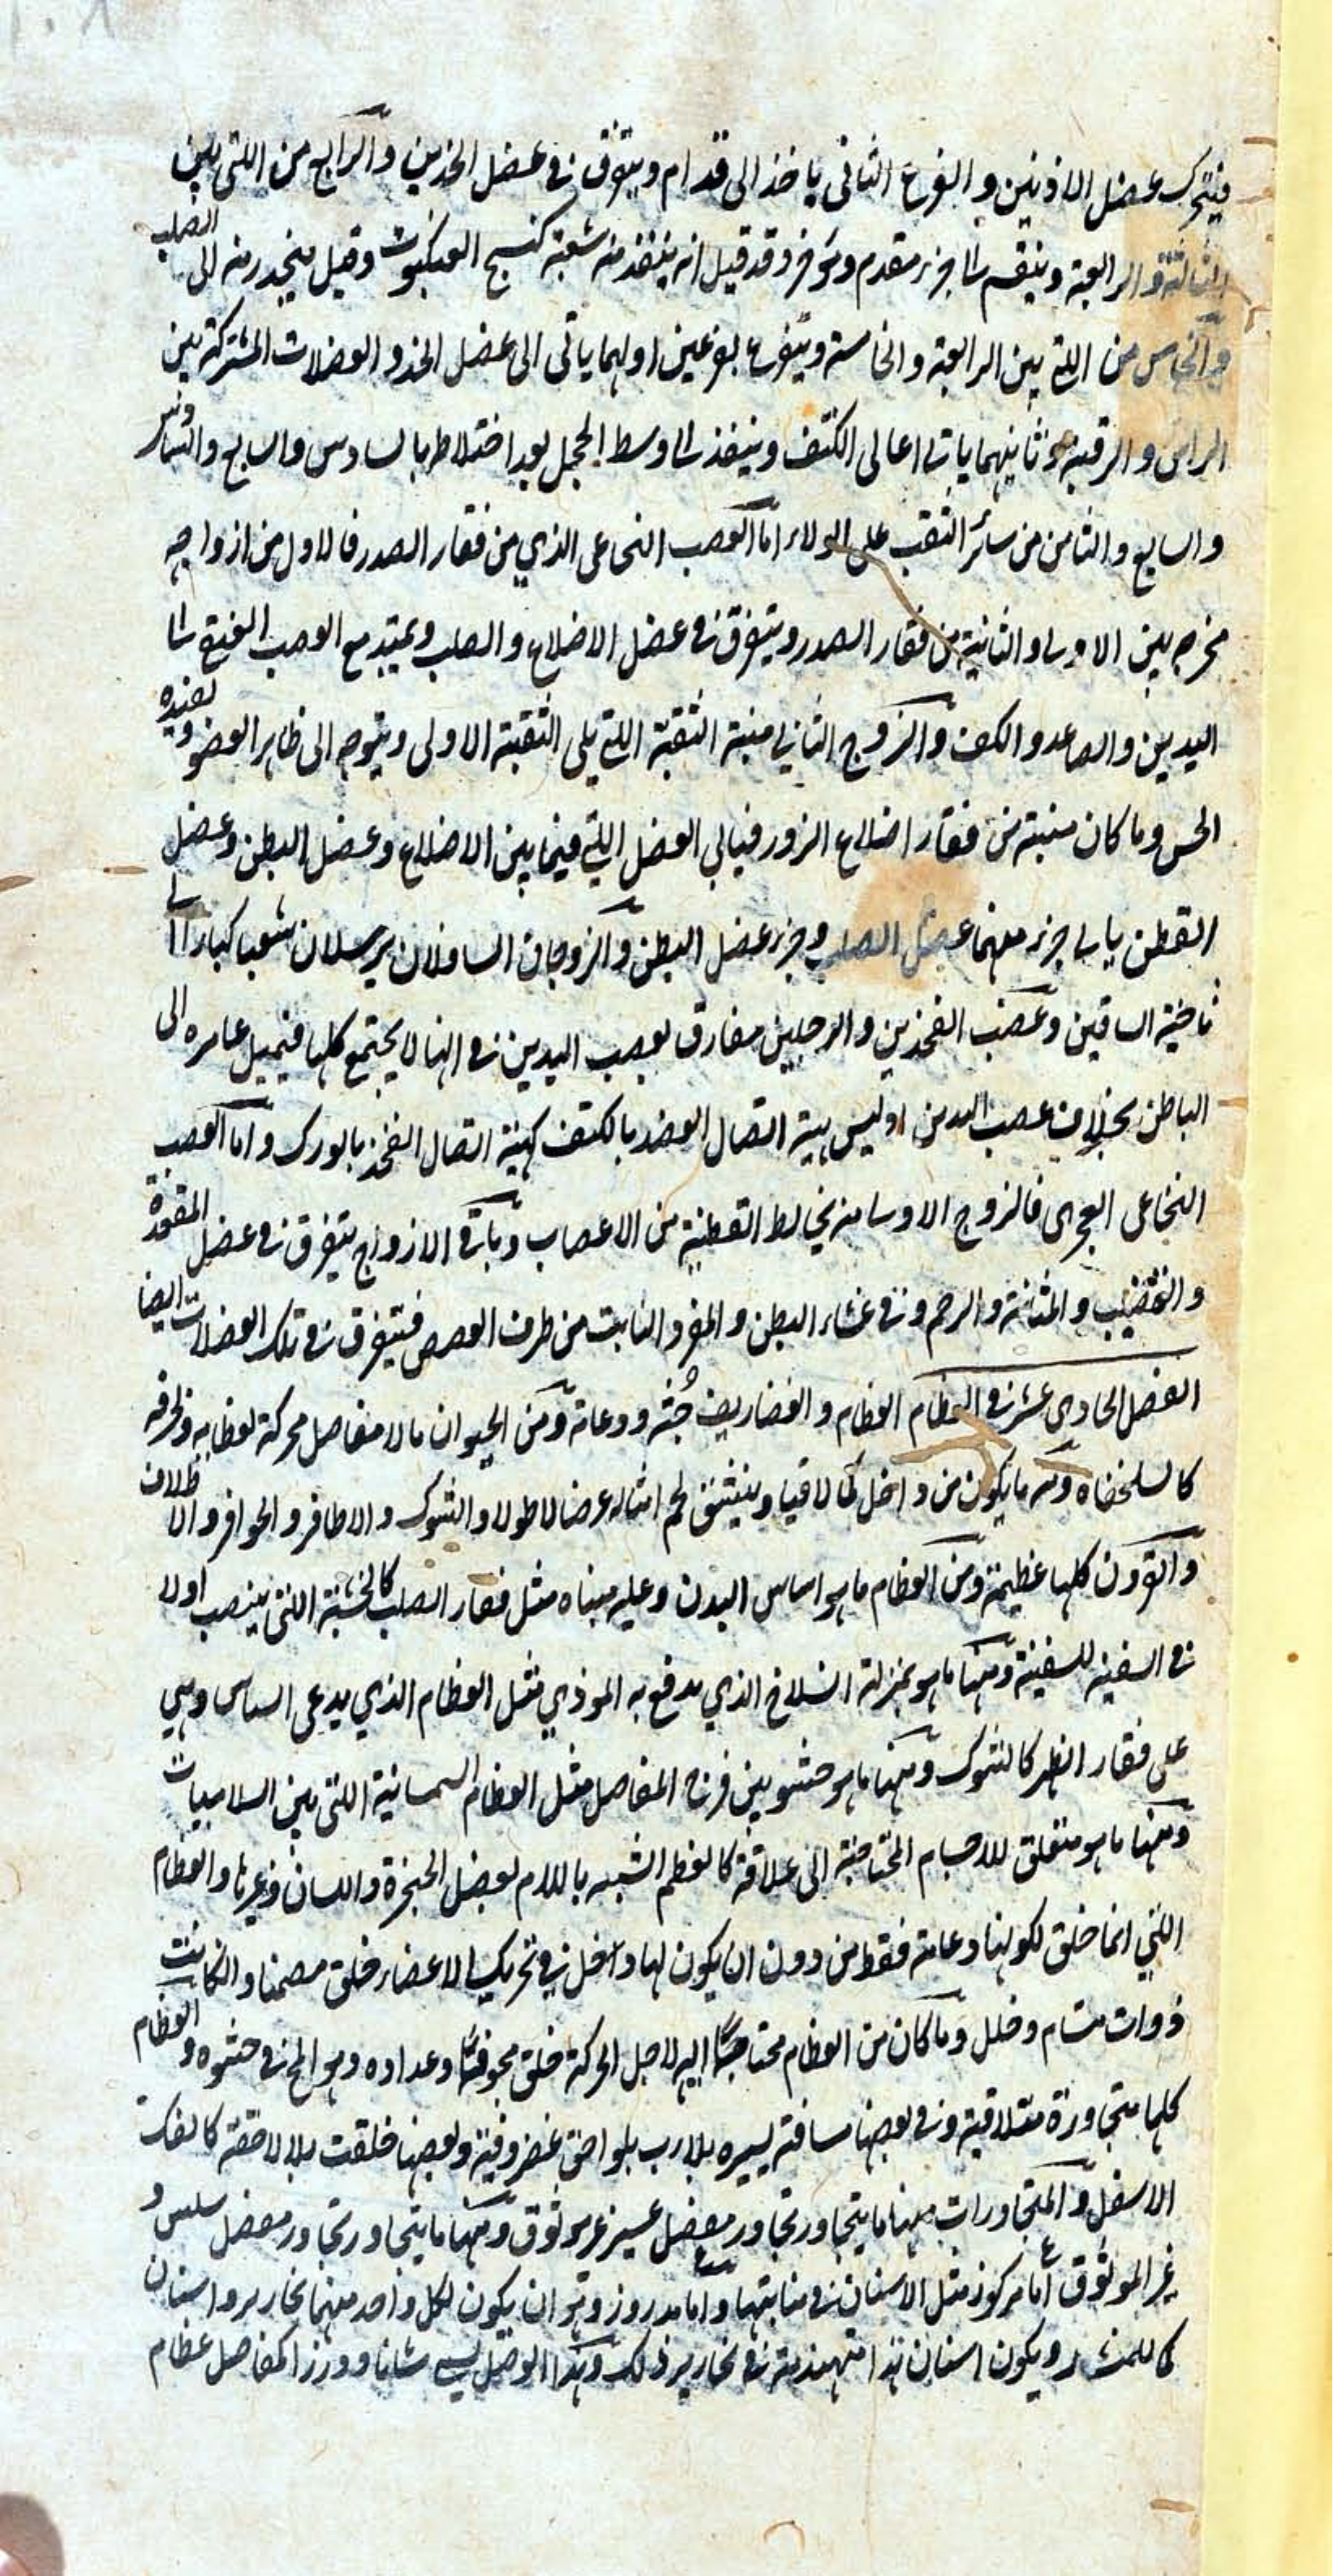 فيتحرك عضل الاذنين و الفرع الثانى ياخذ الى قدام ويتفرق فى عضل الخدين والرابع من اللتى بين
الثالثة والرابعة وينقسم الى جزء مقدم وموخر وقد قيل انه ينفذ منه شعبة كنسج العنكبوت وقيل ينحدر منه الى الصلب
والخامس من اللتى بين الرابعة والخامسة ويتفرع بفرعين اولهما ياتى الى عضل الخد و العضلات المشتركة بين
الراس و الرقبة وثانيهما ياتى اعالى الكتف وينفذ الى اوسط الحجاب بعد اختلاطه بالسادس والسابع والسادس
والسابع والثامن من سائر الثقب على الولاء اما العصب النخاعى الذي من فقار الصدر فالاول من ازواجه
مخرجه بين الاولى والثانية من فقار الصدر ويتفرق فى عضل الاضلاع والصلب ويمتد مع العصب العنقى الى
اليدين والصاعد والكف والزوج الثانى منبته الثقبة اللتى يلى الثقبة الاولى ويتوجه الى ظاهر العضد ويفيده
الحس وما كان منبته من فقار اضلاع الزور فياتى العضل اللتى فيما بين الاضلاع وعضل البطن وعضل
القطن ياتى جزء منهما عضل الصلب وجزء عضل البطن والزوجان السافلان يرسلان شعبا كبارا الى
ناحية الساقين وعصب الفخذين والرجلين مفارق لعصب اليدين فى انها لا يجتمع كلها فيميل عامره الى
الباطن بخلاف عصب اليدين اذ ليس هيئة اتصال العضد بالكتف كهيئة اتصال الفخذ بالورك واما العصب
النخاعى العجزى فالزوج الاول منه يخالط القطنية من الاعصاب وباقى الازواج يتفرق فى عضل المقعدة
والقضيب والمثانة والرحم وفى غشاء البطن والفرد النابت من طرف العصعص فيتفرق فى تلك العضلات ايضا
الفصل الحادى عشر فى العظام العظام والغضاريف جُنّة ودعامة ومن الحيوان ما لا مفاصل محركة لعظامه وخزفه
كالسلحفاه ومنه ما يكون من داخل ملاقيا وينشق لحم امثاله عرضا لا طولا والشوك والاظافر والحوافر والاظلاف
والقرون كلها عظيمة ومن العظام ما هو اساس البدن وعليه مبناه مثل فقار الصلب كالخشبة اللتى ينصب اولا
فى السفينه للسفينة ومنها ما هو بمنزلة السلاح الذي يدفع به الموذي مثل العظام الذي يدعى السناسن وهي
على فقار الظهر كالشوك ومنها ما هو حشو بين فرج المفاصل مثل العظام السمسانية اللتى بين السلاميات
ومنها ما هو متعلق للاجسام المحتاجة الى علاقة كالعظم الشبيه باللام لعضل الحنجرة واللسان وغيرها والعظام
اللتي انما خلق لكونها دعامة فقط من دون ان يكون لها داخل فى تحريك الاعضاء خلق مصمتا وان كانت
ذوات مسام وخلل وما كان من العظام محتاجا اليه لاجل الحركة خلق مجوفا وعداده وهو المخ فى حشوه والعظام
كلها متجاورة متلاقية وفى بعضها مسافة يسيره بلا ريب بلواحق غضروفية وبعضها خلقت بلا لاحقة كالفك
الاسفل والمتجاورات منها ما يتجاور تجاور مفصل عسير غير موثوق ومنها ما يتجاور تجاور مفصل سلس و
غير الموثوق اما مركوز مثل الاسنان فى منابتها واما مدروز وهو ان يكون لكل واحد منهما تحازيز واسنان
كالمنشار ويكون اسنان هذا مهندمة فى تحازيز ذلك وهذا الوصل يسمى شانا ودرزا كمفاصل عظام